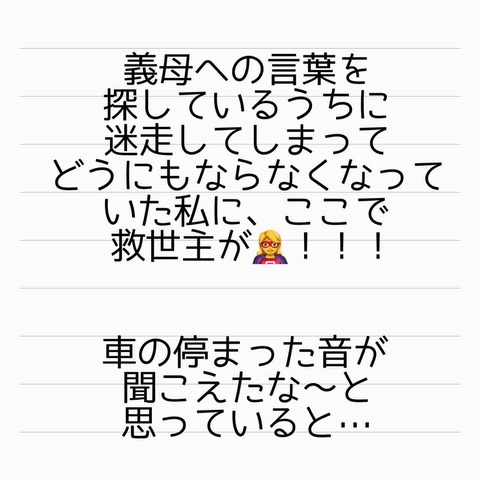 義母への言葉を
探しているうちに
迷走してしまって
どうにもならなくなって
いた私に、ここで
救世主が🦸‍♀️！！！
車の停まった音が
聞こえたな〜と
思っていると…